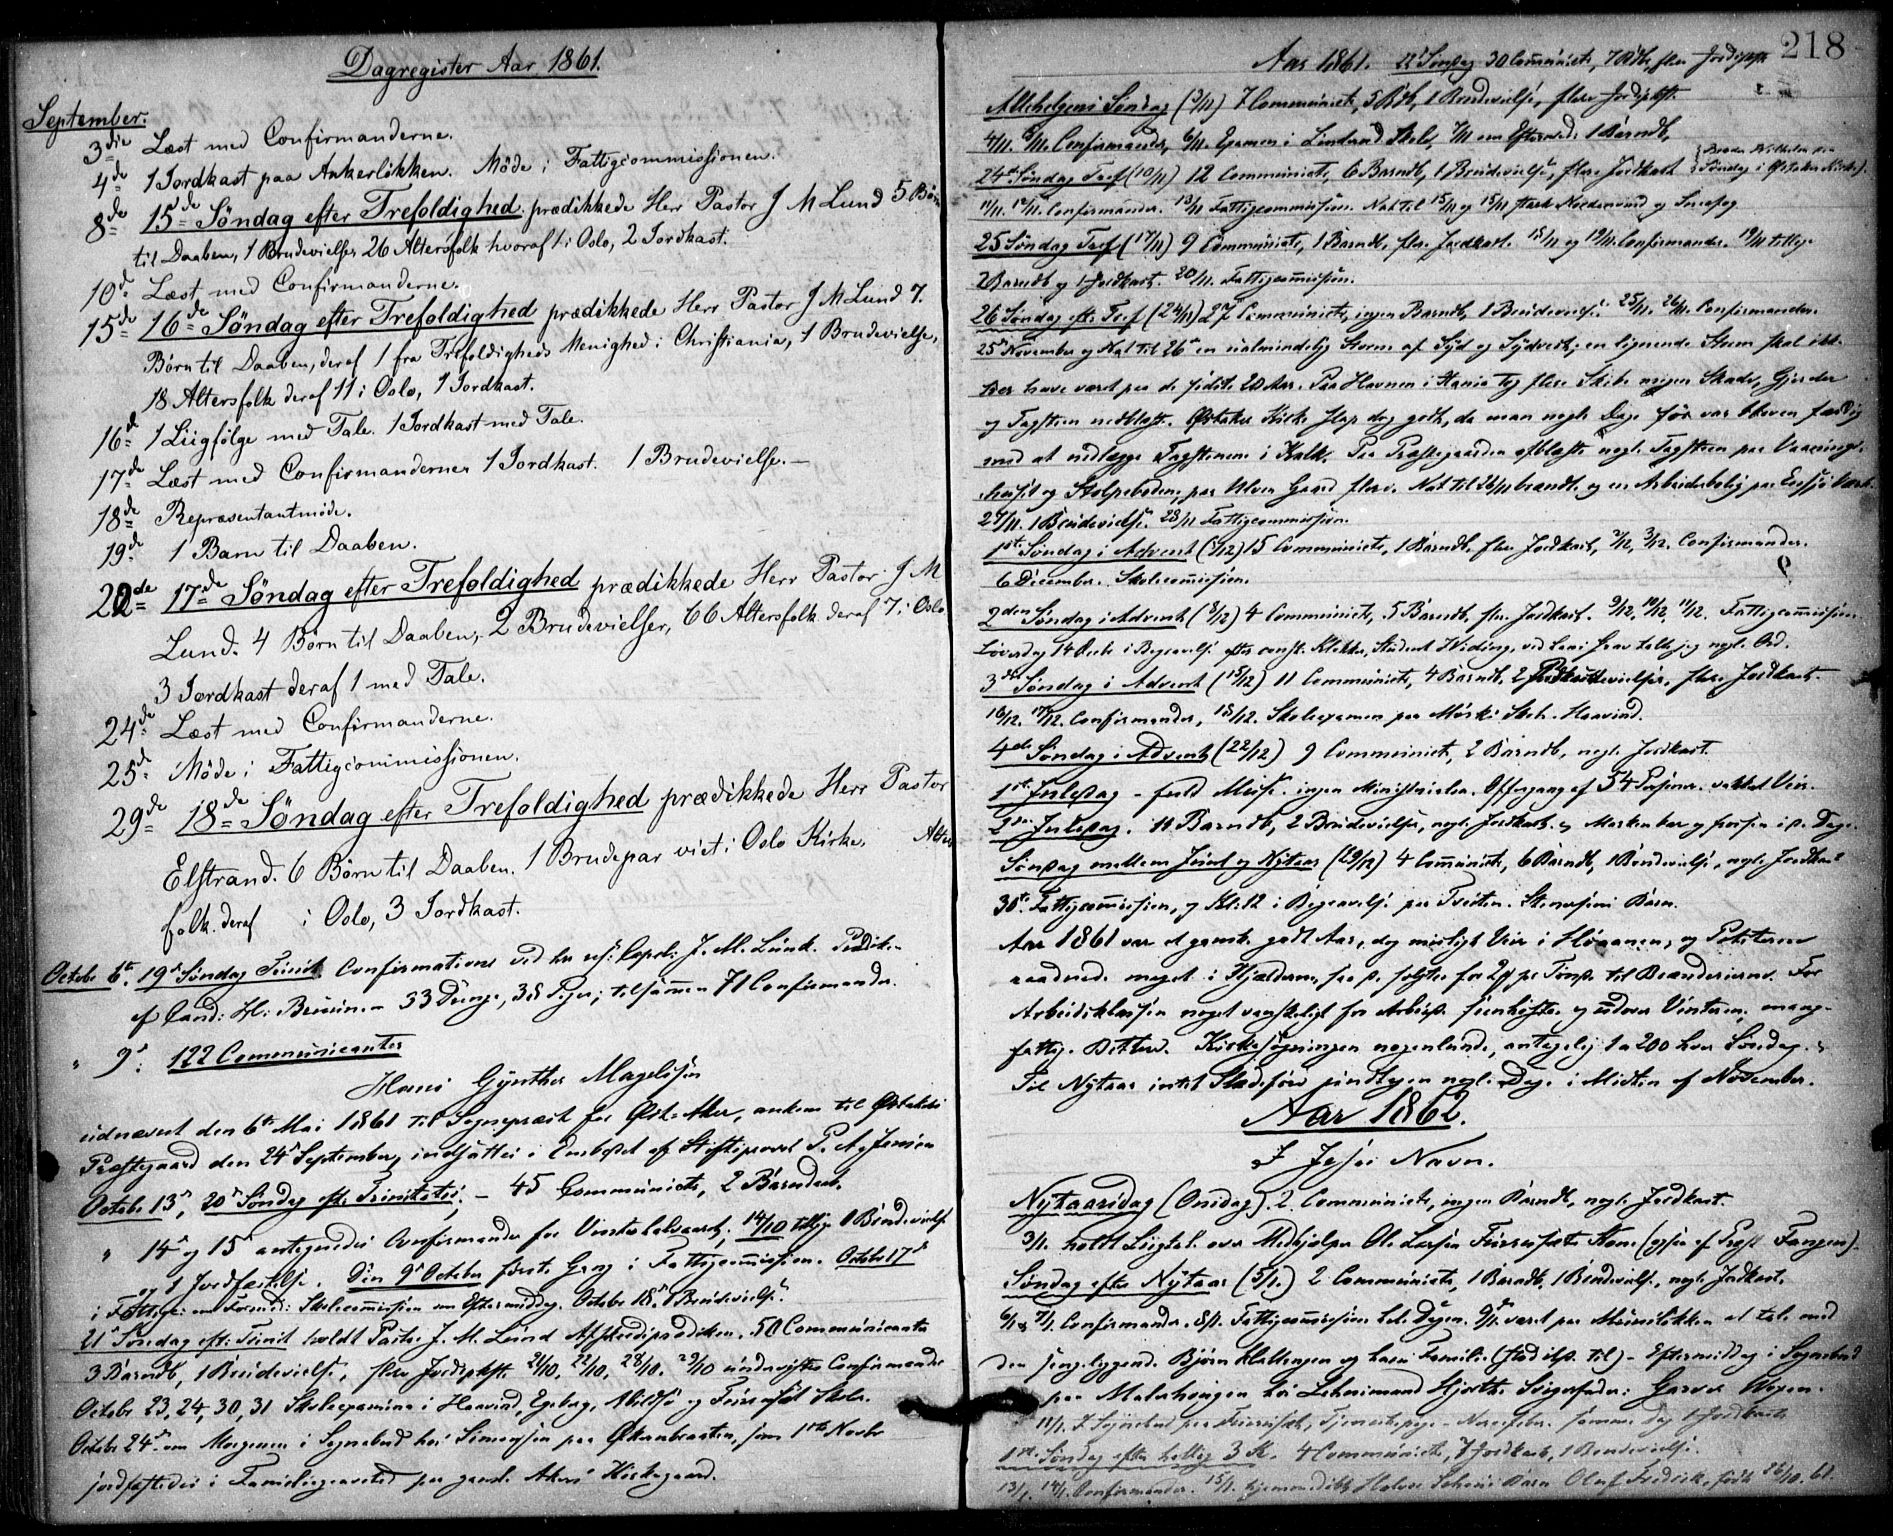 Dagregister Aar 1861.
September.
3die Læst med Confirmanderne.
4de 1 Jordkast paa Ankerløkken. Møde i Fattigcommissionen.
8de 15de Søndag efter Trefoldighed prædikkede Herr Pastor J M Lund 5 Børn
til Daaben, 1 Brudevielse, 26 Altersfolk hvoraf 1 i Oslo, 2 Jordkast.
10de Læst med Confirmanderne.
15de 16de Søndag efter Trefoldighed prædikkede Herr Pastor J M Lund 7.
Børn til Daaben, deraf 1 fra Trefoldigheds Menighed i Christiania, 1 Brudevielse,
18 Altersfolk deraf 11 i Oslo, 1 Jordkast.
16de 1 Liigfølge med Tale. 1 Jordkast med Tale.
17de Læst med Confirmanderne 1 Jordkast. 1 Brudevielse. —
18de Repræsentantmøde.
19de 1 Barn til Daaben.
22de 17de Søndag efter Trefoldighed prædikkede Herr Pastor J M
Lund. 4 Børn til Daaben, 2 Brudevielser, 66 Altersfolk deraf 7 i Oslo
3 Jordkast deraf 1 med Tale.
24de Læst med Confirmanderne.
25de Møde i Fattigcommissionen.
29de 18de Søndag efter Trefoldighed prædikkede Herr Pastor
Elstrand. 6 Børn til Daaben. 1 Brudepar viet i Oslo Kirke, Alters
folk deraf i Oslo, 3 Jordkast.
Octobr 6te 19de Søndag Trinit Confirmations ved J. M. Lund.
af Cand: 33 Drenge, 38 Piger; tilsammen 71 Confirmander.
" 9de: 122 Communicanter
Hans Gynther Magelssen
udnævnt den 6te Mai 1861 til Sogneprest for Øst-Aker, ankom til Østakers
Præstegaard den 24de September, indsattes i Embedet af Stiftsprovst P. A. Jensen
Octobr 13de, 20de Søndag eft. Trinitatis. — 45 Communic, 2 Barnedaab.
" 14de og 15de antegnedes Confirmander for 14/10 tillige 1 Brudevielse
og 1 Jordfæstelse. Den 9de October første Gang i Fattigcommission. Octobr 17de
i Fattigc: om Formid: Skolecommission om Eftermiddag. Octobr 18de 1 Brudevielse.
21de Søndag eft: Trinit holdt Pastor J. M. Lund Afskedsprædiken. 50 Communicanter
3 Barndb, 1 Brudevielse, flere Jordpkst. 21/10, 22/10, 28/10, 29/10 undervistes Confirmander
Octobr 23, 24, 30, 31 Skoleexamina i Haavind, Egeberg, Abildsø og Furuset Skoler.
Octobr 24de om Morgenen i Sognebud hos Simensen paa Økernbraaten, som 1ste Novbr
jordfæstedes i Familiegravsted paa gamle Akers Kirkegaard.
218
Aar 1861. 22de Søndag 30 Communicts, 7 Bdb, flere Jordspaa
Allehelgens Søndag (3/11) 7 Communicts, 5 Bdb, 1 Brudevielse, flere Jordpkst.
4/11. 5/11. Confirmander, 6/11. Examen i Linderud Skole, 7/11 om Efterm: 1 Barndb,
24de Søndag Tref (10/11) 12 Communicts, 6 Barndb, 1 Brudevielse, flere Jordkast
11/11. 12/11. Confirmander. 13/11 Fattigcommission. Nat til 15/11 og 15/11 stærk Nordenvind og Snefog
25 Søndag Tref (17/11) 9 Communicts, 1 Barndb, flere Jordkast. 18/11 og 19/11. Confirmander. 19/11 tillige
2 Barndb og 1 Jordkast. 20/11. Fattigcommission.
26 Søndag eft. Tref (24/11) 27 Communicts, ingen Barndb, 1 Brudevielse. 25/11. 26/11 Confirmander.
25de November og Nat til 26de en ualmindelig Storm af Syd og Sydvest; en lignende Storm skal ikke
her have været paa de sidste 20 Aar. Paa Havnen i Xiania tog flere Skibe megen Skade, Gjerder
og Tagsteen nedblæste. Østaker Kirke slap dog godt, da man nogle Dage før var bleven færdig
med at nedlægge Tagstenene i Kalk. Paa Præstegaarden afblæste nogle Tagsteen paa Vaanings-
huset og Stolpeboden; paa Ulven Gaard flere. Nat til 26/11 brændte og en Arbeiderbolig paa
27/11. 1 Brudevielse. 28/11 Fattigcommission.
1ste Søndag i Advent (1/12) 15 Communicts, 1 Barndb, flere Jordkast, 2/12, 3/12. Confirmander.
6 December. Skolecommission.
2den Søndag i Advent (8/12) 4 Communicts, 5 Barndb, fler Jordkast. 9/12, 10/12, 11/12. Fattigcommission
Løverdag 14 Decbr i Begravelse efter const. Klokker, Student Hiding, ved hans Grav talte jeg nogle Ord.
3de Søndag i Advent (15/12) 11 Communicts, 4 Barndb, 2 Brudevielser, flere Jordkast.
16/12. 17/12. Confirmander, 18/12. Skoleexamen paa Haavind.
4de Søndag i Advent (22/12) 9 Communicts, 2 Barndb, nogle Jordkast.
1ste Juledag — fuld Messe. ingen Ministerialia. Offergang af 54 Personer. vakkert Veir.
2den Juledag. 11 Barndb, 2 Brudevielser, nogle Jordkast. Marken bar og frossen i d. Dage.
Søndag mellem Juul og Nytaar (29/12) 4 Communicts, 6 Barndb, 1 Brudevielse, nogle Jordkast
30te. Fattigcommission, og Kl: 12 i Begravelse paa Tveten. Stenersens Barn.
Aar 1861 var et ganske godt Aar, dog misligt Veir i Høaanen, og Poteterne
raadnede meget i Kjælderne, saa de solgtes for 2 pr Tønde til Brænderierne. For
Arbeidsklassen noget vanskeligt for Arbeide senhøstes og udover Vinteren, mang-
fattig. Kirkesøgningen nogenlunde, antagelig 1 a 200 hver Søndag.
Til Nytaar intet Slædeføre undtagen nogle Dage i Midten af November.
Aar 1862.
I Jesu Navn.
Nytaarsdag (Onsdag). 2 Communicts, ingen Barndb, nogle Jordkast.
3/1. holdt Liigtale over Medhjælper Ole Larsen Furuset Kone
Søndag efter Nytaar (5/1.) 2 Communicts, 1 Barndb, 1 Brudevielse, nogle Jordkast.
6/1 & 7/1. Confirmander. 8/1. Fattigcommission hele Dagen. 9/1. været paa at tale med
den sengeliggende Bjørn Klathengen og hans Familie — Eftermiddag i Sognebud
paa Malerhaugen hos Svigerfader: Garver
11/1. I Sognebud paa Furuset, samme Dag 1 Jordkast
1ste Søndag efter hellig 3 K. 4 Communicts, 7 Jordkast, 1 Brudevielse.
13/1. 14/1. Confirmander. 15/1. hjemmedøbt Barn Oluf Fredrik, født 26/10. 61.